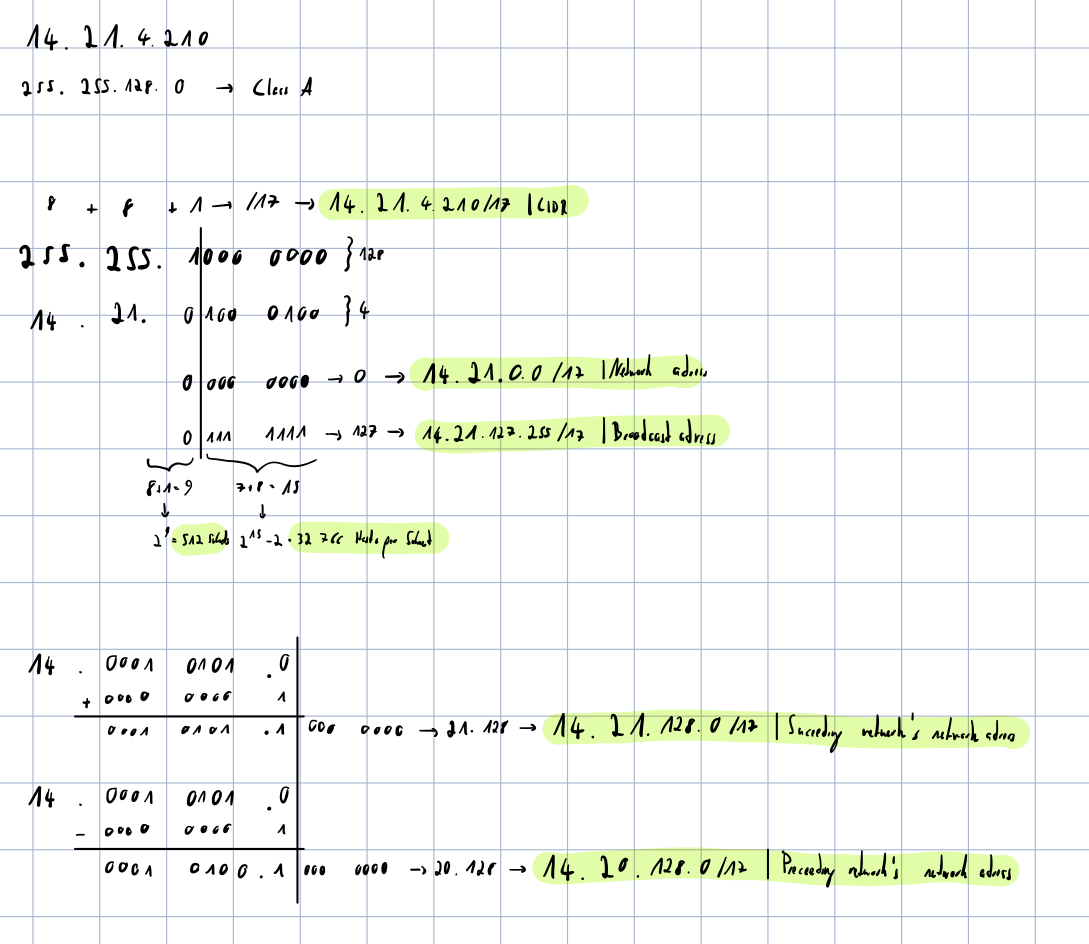 14. 21. 4. 210
255. 255. 128. 0 → Class A
8 + 8 + 1 → /17 → 14. 21. 4. 210/17 | CIDR
255. 255. 1000 0000 } 128
14 . 21. 0 100 0100 } 4
0 000 0000 → 0 → 14. 21. 0. 0 /17 | Network adress
0 111 1111 → 127 → 14. 21. 127. 255 /17 | Broadcast adress
8+1=9 7+8=15
↓ ↓
2⁹ = 512 Subnets 2¹⁵ - 2 = 32 766 Hosts per Subnet
14 . 0001 0101 . 0
+ 0000 0000 1
0001 0101 . 1 000 0000 → 21. 128 → 14. 21. 128. 0 /17 | Succeeding network's network adress
14 . 0001 0101 . 0
- 0000 0000 1
0001 0100 . 1 000 0000 → 20. 128 → 14. 20. 128. 0 /17 | Preceeding network's network adress